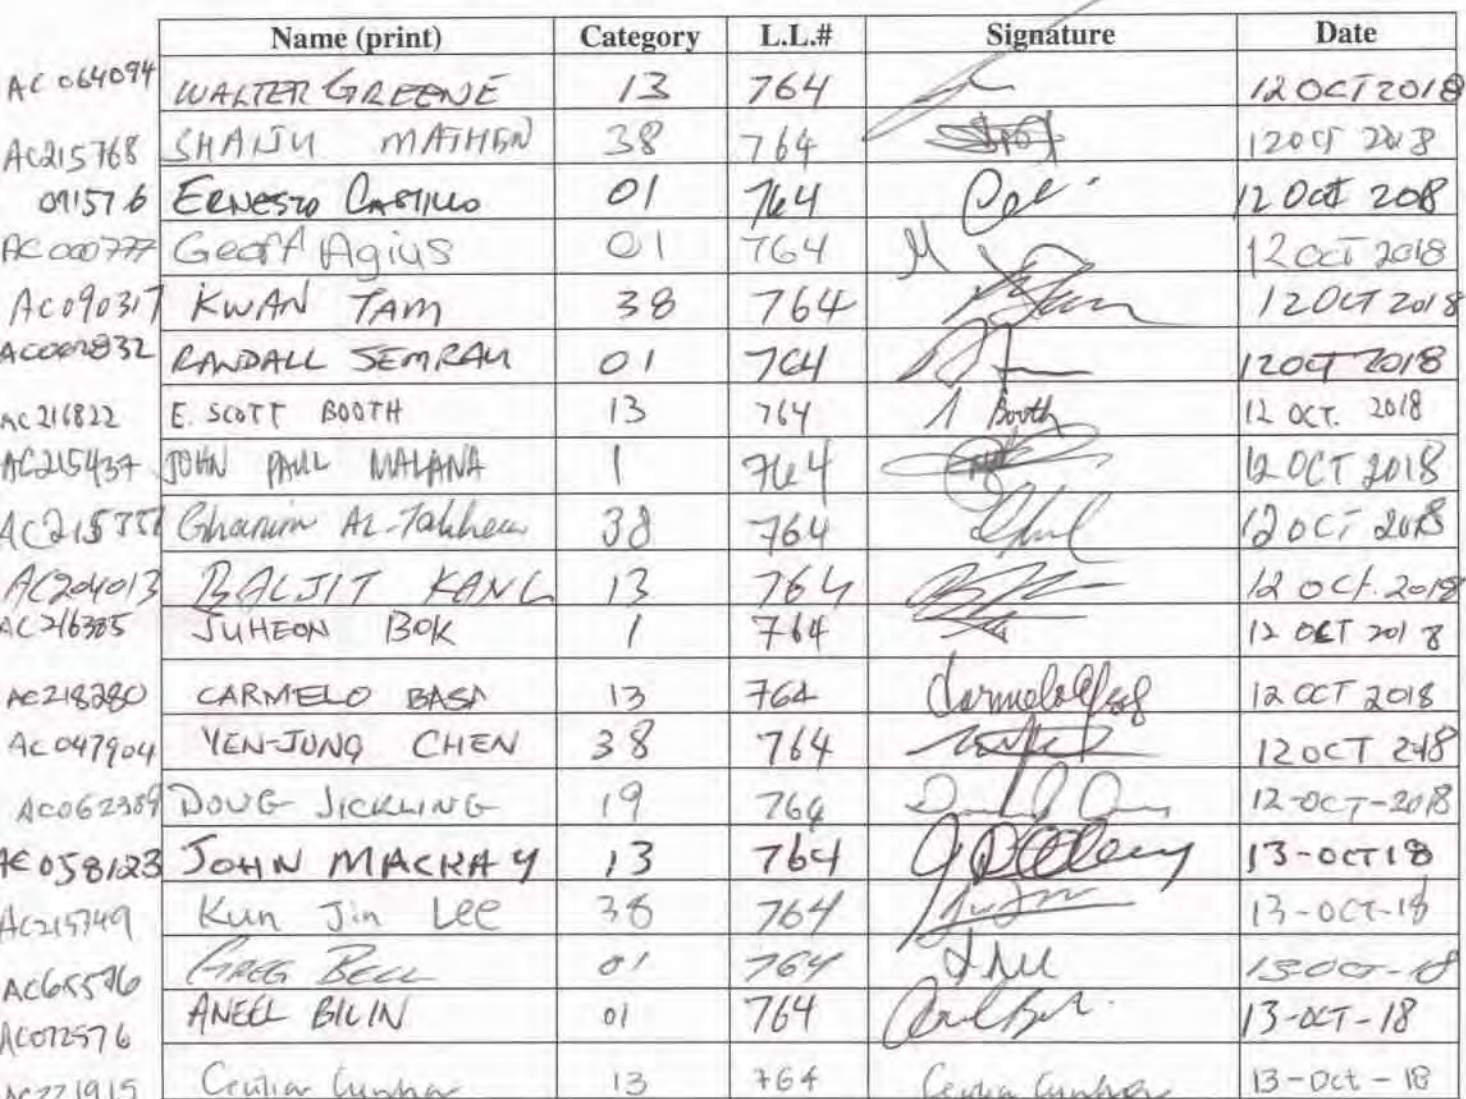 Name (print) Category L.L.# Signature Date
AC 064094 WALTER GREENE 13 764 12 OCT 2018
AC215768 SHAIJU MATHEW 38 764 12 OCT 2018
091576 ERNESTO CASTILLO 01 764 12 Oct 2018
AC 000777 Geoff Agius 01 764 12 OCT 2018
AC090317 KWAN TAM 38 764 12 OCT 2018
RANDALL SEMRAU 01 764 12 OCT 2018
AC 216822 E. SCOTT BOOTH 13 764 Booth 12 OCT. 2018
AC215437 JOHN PAUL MALANA 1 764 12 OCT 2018
Ghanim 38 764 12 OCT 2018
AC204013 BALJIT KANG 13 764 12 OCT. 2018
AC216385 JUHEON BOK 1 764 12 OCT 2018
AC218280 CARMELO BASA 13 764 12 OCT 2018
AC 047904 YEN-JUNG CHEN 38 764 12 OCT 2018
AC062389 DOUG JICKLING 19 764 12-OCT-2018
AC 058123 JOHN MACKAY 13 764 13-OCT 18
AC215749 Kun Jin Lee 38 764 13-OCT-18
GREG BELL 01 764 13-OCT-18
AC072576 ANEEL BILIN 01 764 13-OCT-18
AC221915 13 764 13-Oct-18